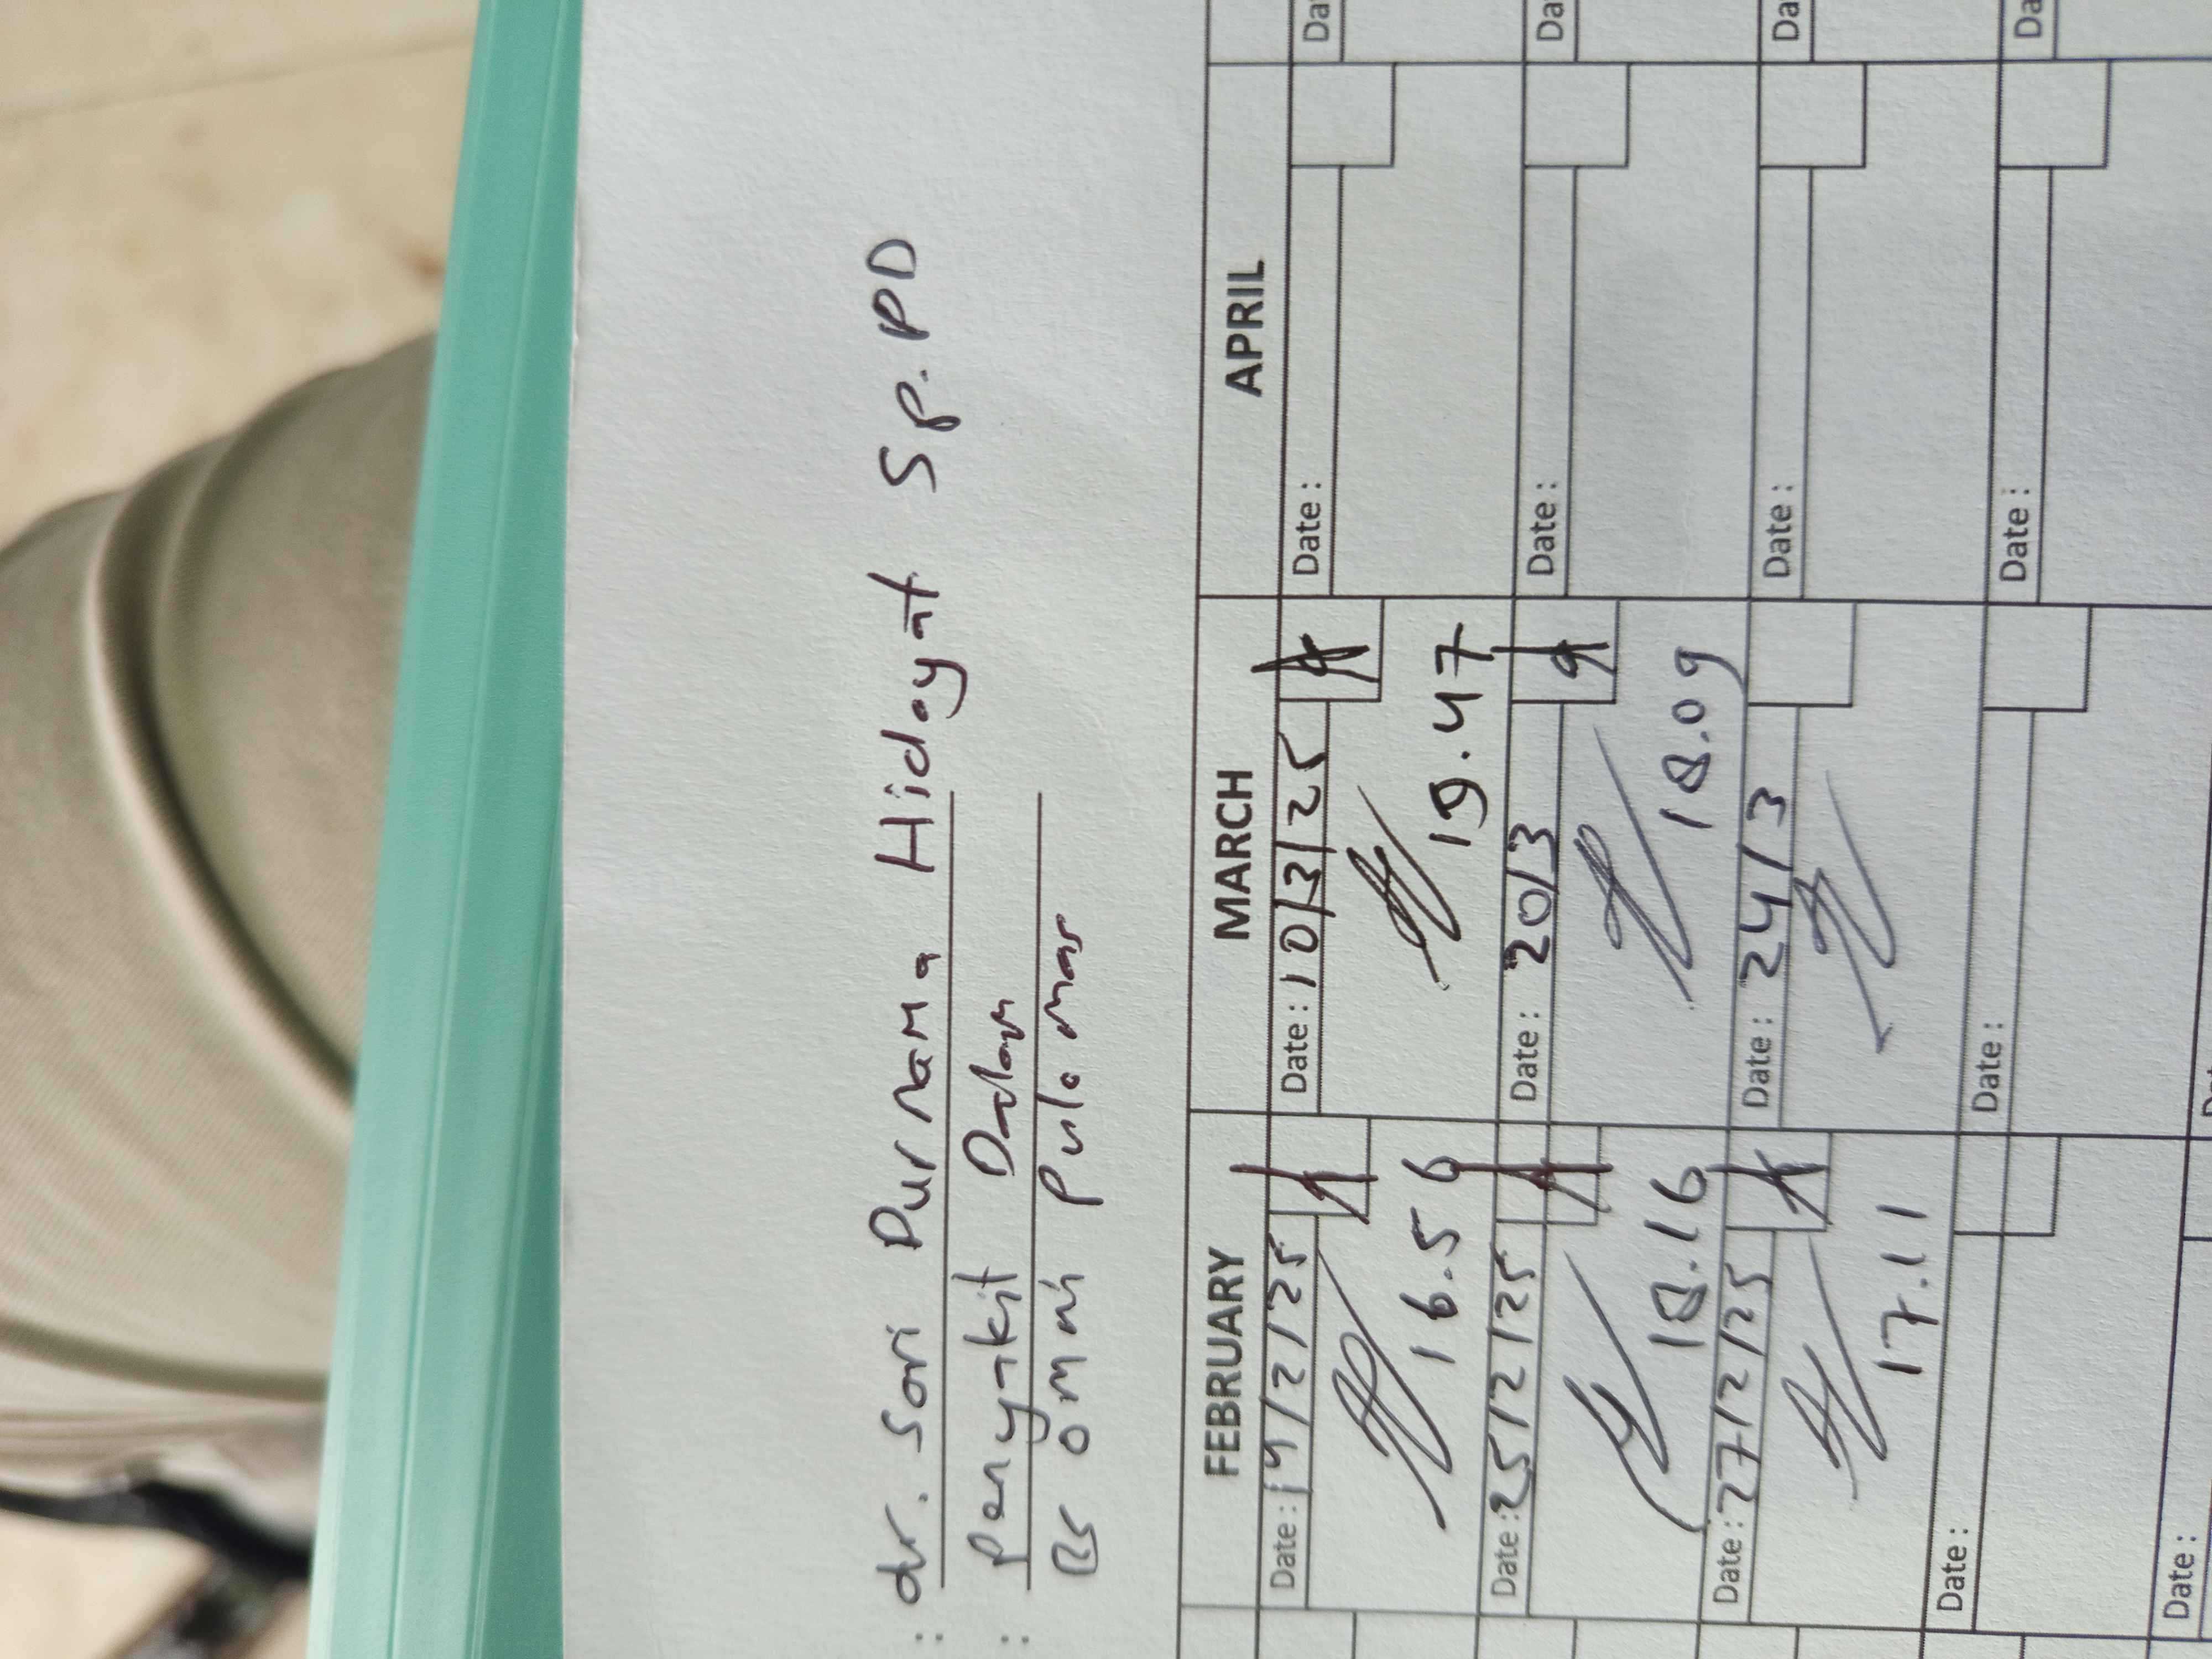 : dr. Sari Purnama Hidayat Sp.PD
: Penyakit Dalam
RS Omni Pulo mas
FEBRUARY MARCH APRIL
Date: 19/2/25 Date: 10/3/25 Date: Da
16.56 19.47
Date: 25/2/25 Date: 20/3 Date: Da
18.16 18.09
Date: 27/2/25 Date: 24/3 Date: Da
17.11
Date: Date: Date: Da
Date: